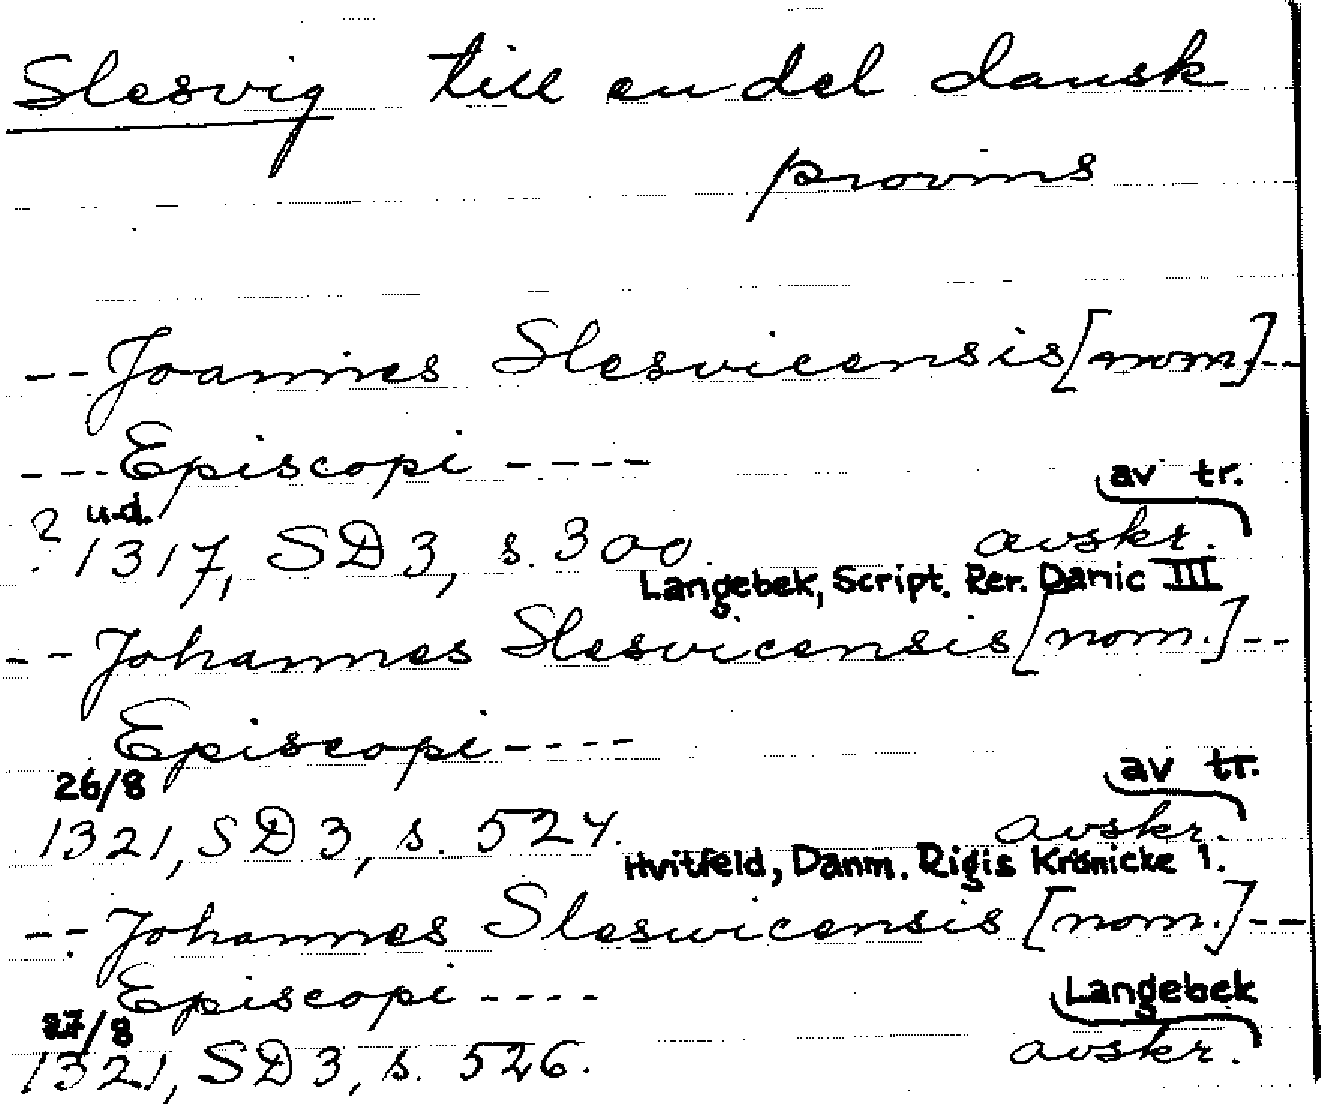 Slesvig till en del dansk
provins
-- Joannes Slesvicensis [nom.] --
--- Episcopi ----
av tr.
? u.d. 1317, SD 3, s. 300. avskr.
Langebek, Script. Rer. Danic III
-- Johannes Slesvicensis [nom.] --
Episcopi ----
26/8 av tr.
1321, SD 3, s. 524. avskr.
Hvitfeld, Danm. Rigis Krönicke 1.
-- Johannes Sleswicensis [nom.] --
Episcopi ----
27/8 Langebek
1321, SD 3, s. 526. avskr.